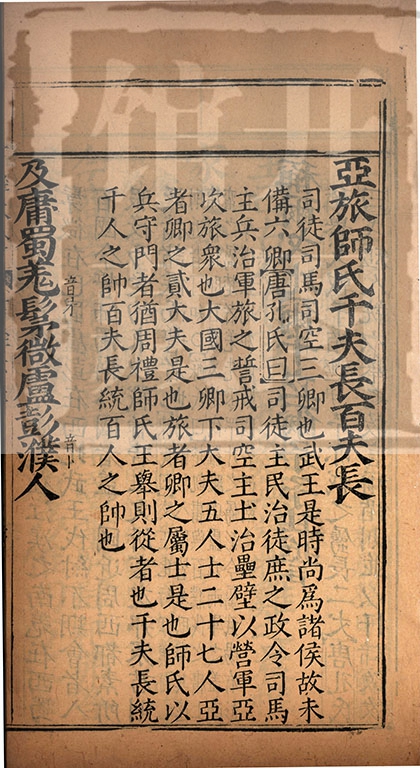 亞旅師氏千夫長百夫長
司徒司馬司空三卿也武王是時尚爲諸侯故未
備六卿唐孔氏曰司徒主民治徒庶之政令司馬
主兵治軍旅之誓戒司空主土治壘壁以營軍亞
次旅衆也大國三卿下大夫五人士二十七人亞
者卿之貳大夫是也旅者卿之屬士是也師氏以
兵守門者猶周禮師氏王舉則從者也千夫長統
千人之帥百夫長統百人之帥也
及庸蜀羌髳音矛微盧彭濮音卜人